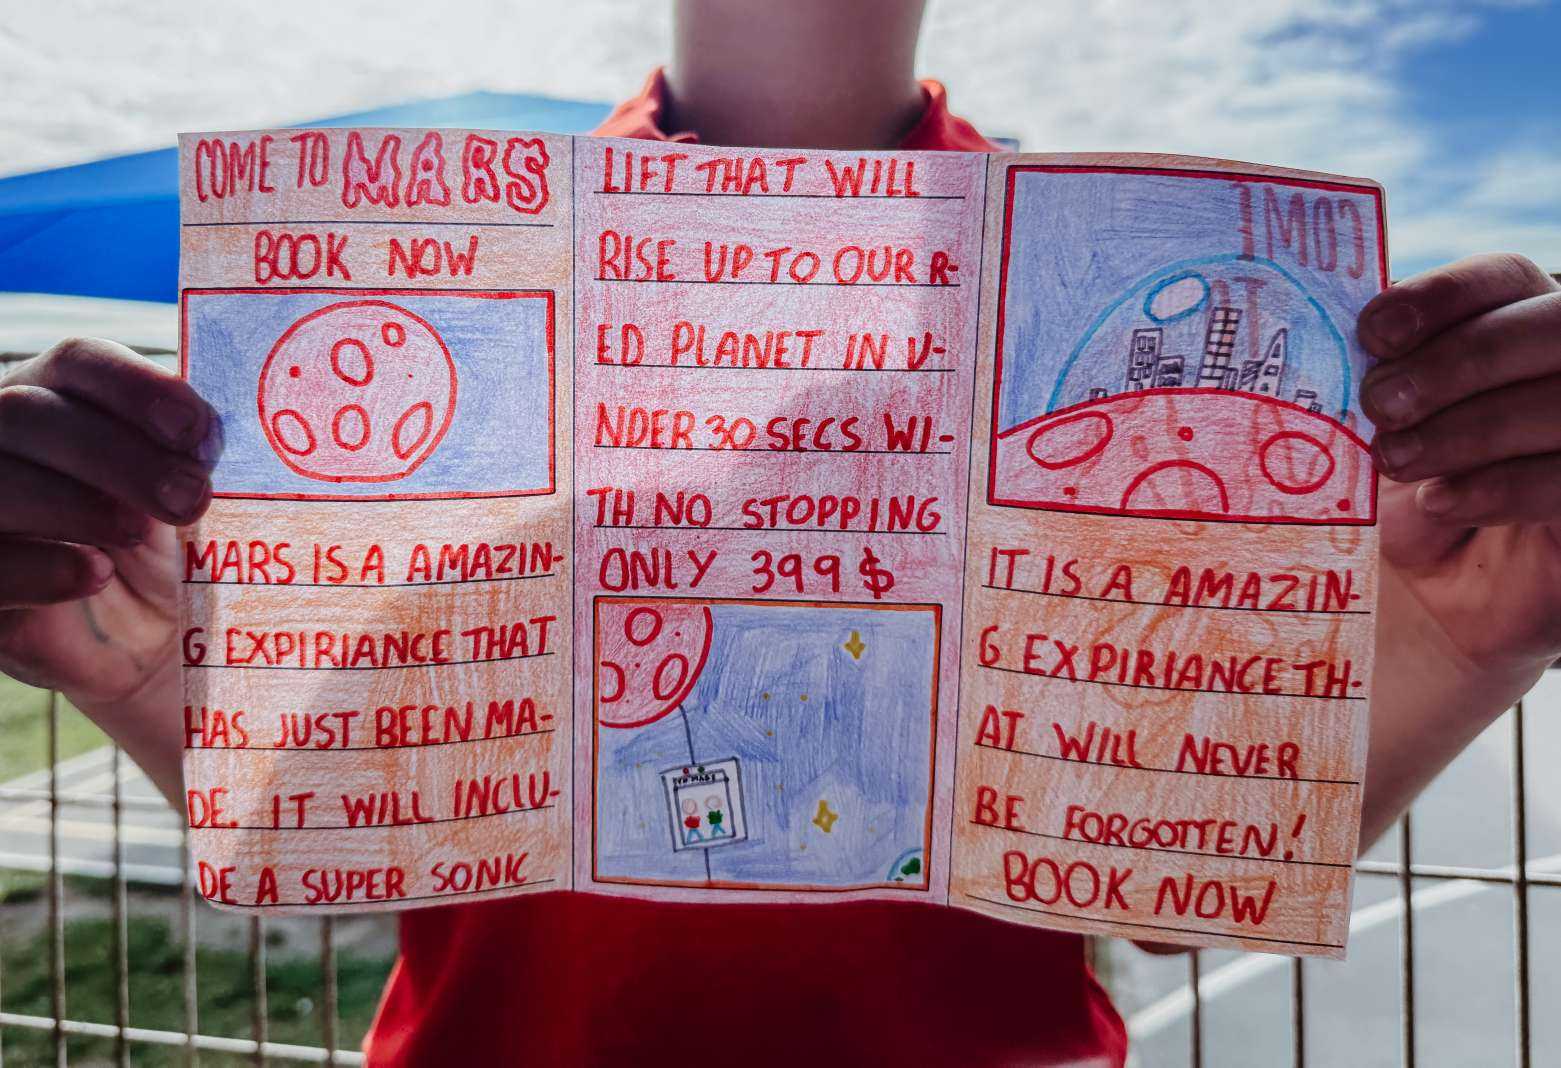 COME TO MARS
BOOK NOW
MARS IS A AMAZIN-
G EXPIRIANCE THAT
HAS JUST BEEN MA-
DE. IT WILL INCLU-
DE A SUPER SONIC
LIFT THAT WILL
RISE UP TO OUR R-
ED PLANET IN U-
NDER 30 SECS WI-
TH NO STOPPING
ONLY 399 $
COME
TO
IT IS A AMAZIN-
G EXPIRIANCE TH-
AT WILL NEVER
BE FORGOTTEN!
BOOK NOW